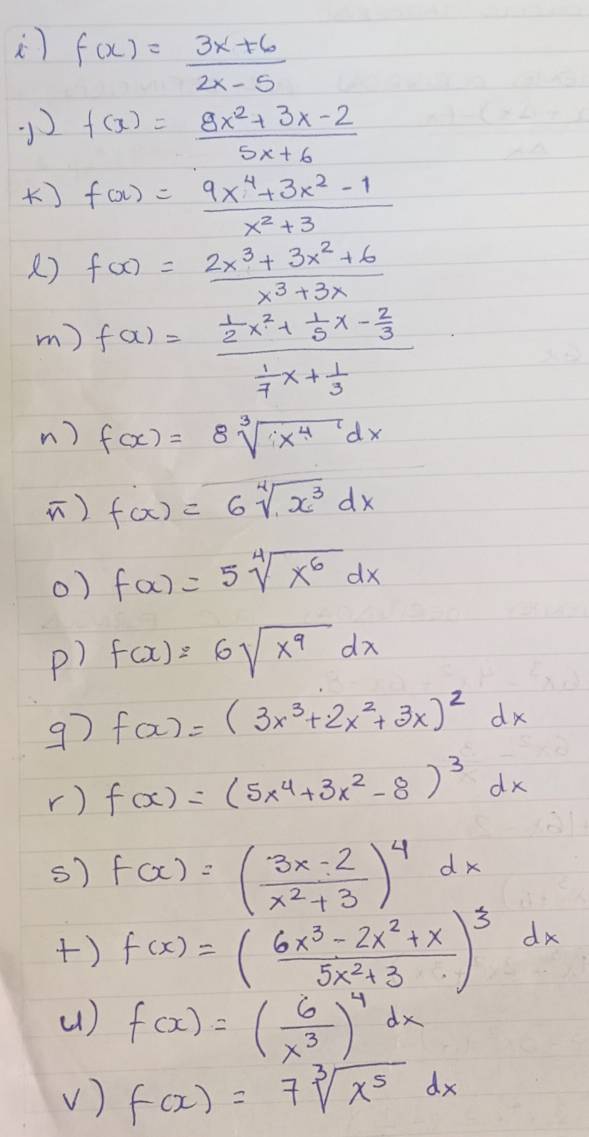 i) f(x) = (3x+6)/(2x-5)
j) f(x) = (8x²+3x-2)/(5x+6)
k) f(x) = (9x⁴+3x²-1)/(x²+3)
l) f(x) = (2x³+3x²+6)/(x³+3x)
m) f(x) = (1/2 x²+1/5 x-2/3)/(1/7 x+1/3)
n) f(x) = 8∛(x⁴) dx
ñ) f(x) = 6∜(x³) dx
o) f(x) = 5∜(x⁶) dx
p) f(x) = 6√(x⁹) dx
q) f(x) = (3x³+2x²+3x)² dx
r) f(x) = (5x⁴+3x²-8)³ dx
s) f(x) = ((3x-2)/(x²+3))⁴ dx
t) f(x) = ((6x³-2x²+x)/(5x²+3))³ dx
u) f(x) = (6/x³)⁴ dx
v) f(x) = 7∛(x⁵) dx